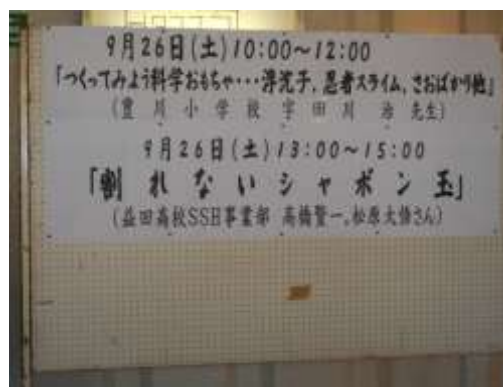 9月26日(土)10:00〜12:00
「つくってみよう科学おもちゃ・・・浮沈子,忍者スライム,さおばかり他」
(豊川小学校 宇田川 治 先生)
9月26日(土)13:00〜15:00
「割れないシャボン玉」
(益田高校SSH事業部 高橋賢一,松原大悟さん)